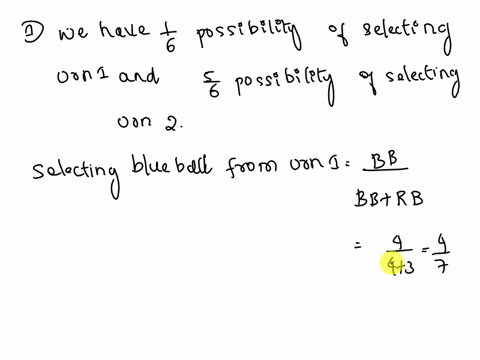 ① we have 1/6 possibility of selecting
urn 1 and 5/6 possibility of selecting
urn 2.
selecting blue ball from urn 1 = BB / BB+RB
= 4/4+3 = 4/7